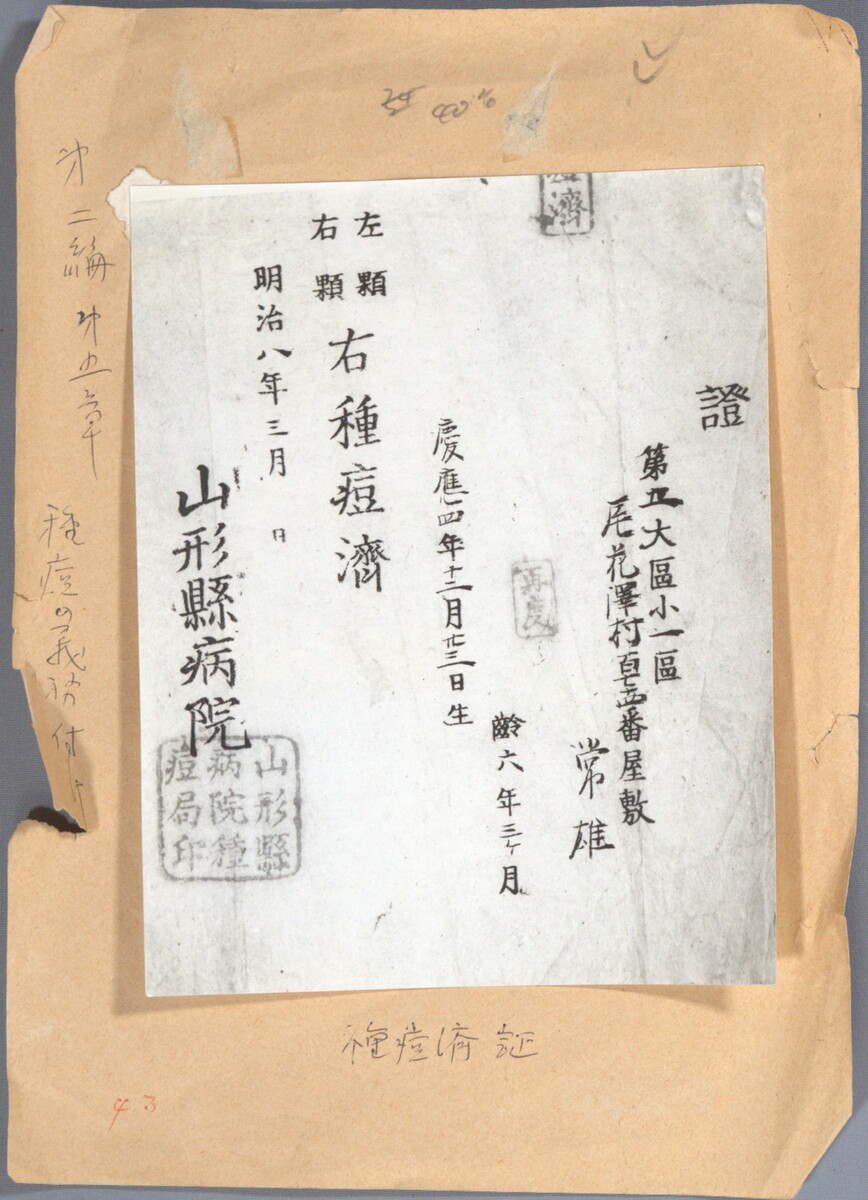 証
34 40%
第二編 第五章
種痘の義務付け
濟
證
第五大區小一區
尾花澤村百七十五番屋敷
常雄
再度
齢六年三ヶ月
慶應四年十二月廿三日生
左 顆
右 顆
右種痘濟
明治八年三月 日
山形縣病院
山形縣
病院種
痘局印
種痘済証
43